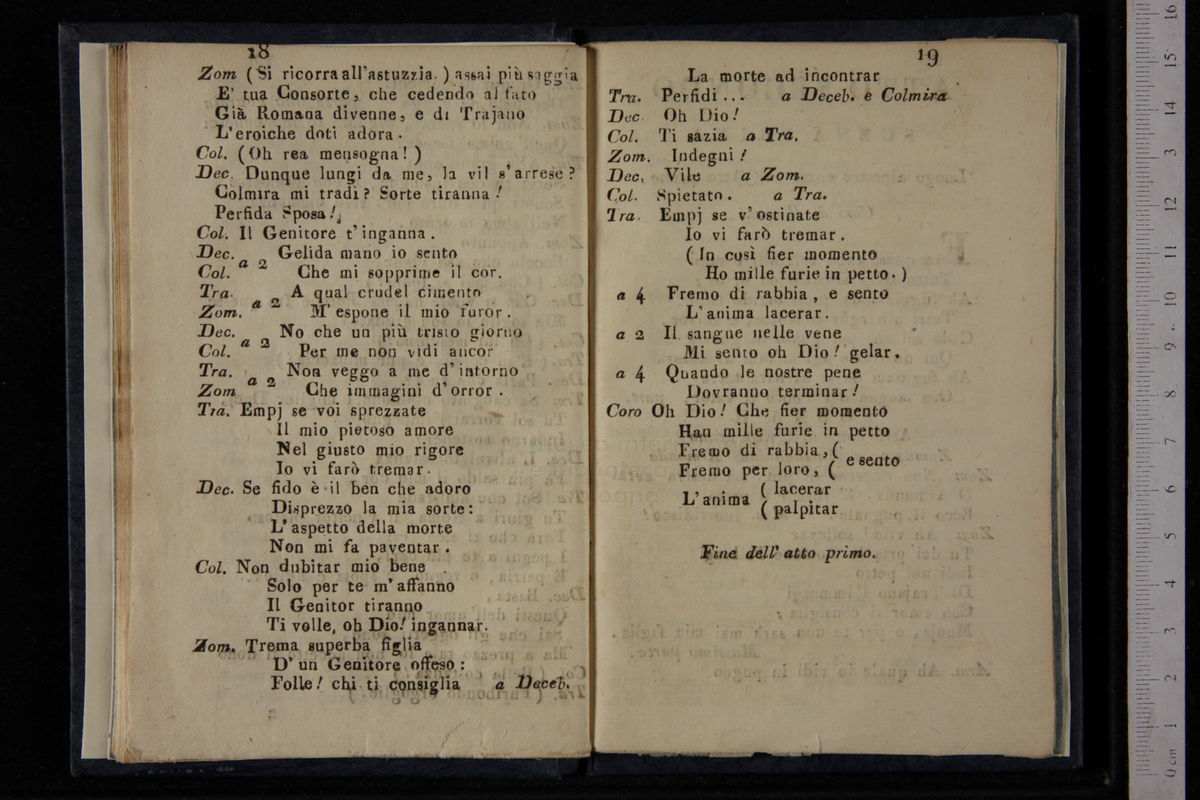 18
Zom (Si ricorra all'astuzzia.) assai più saggia
E' tua Consorte, che cedendo al fato
Già Romana divenne, e di Trajano
L'eroiche doti adora.
Col. (Oh rea mensogna!)
Dec. Dunque lungi da me, la vil s'arrese?
Colmira mi tradì? Sorte tiranna!
Perfida Sposa!
Col. Il Genitore t'inganna.
Dec. a 2 Gelida mano io sento
Col. Che mi sopprime il cor.
Tra. a 2 A qual crudel cimento
Zom. M'espone il mio furor.
Dec. a 2 No che un più tristo giorno
Col. Per me non vidi ancor
Tra. a 2 Non veggo a me d'intorno
Zom Che immagini d'orror.
Tra. Empj se voi sprezzate
Il mio pietoso amore
Nel giusto mio rigore
Io vi farò tremar.
Dec. Se fido è il ben che adoro
Disprezzo la mia sorte:
L'aspetto della morte
Non mi fa paventar.
Col. Non dubitar mio bene
Solo per te m'affanno
Il Genitor tiranno
Ti volle, oh Dio! ingannar.
Zom. Trema superba figlia
D'un Genitore offeso:
Folle! chi ti consiglia a Deceb.
19
La morte ad incontrar
Tra. Perfidi... a Deceb. e Colmira
Dec. Oh Dio!
Col. Ti sazia a Tra.
Zom. Indegni!
Dec. Vile a Zom.
Col. Spietato. a Tra.
Tra. Empj se v'ostinate
Io vi farò tremar.
(In così fier momento
Ho mille furie in petto.)
a 4 Fremo di rabbia, e sento
L'anima lacerar.
a 2 Il sangue nelle vene
Mi sento oh Dio! gelar.
a 4 Quando le nostre pene
Dovranno terminar!
Coro Oh Dio! Che fier momento
Han mille furie in petto
Fremo di rabbia, (
Fremo per loro, ( e sento
L'anima ( lacerar
( palpitar
Fine dell' atto primo.
16
15
14
13
12
11
10
9
8
7
6
5
4
3
2
1
0 cm